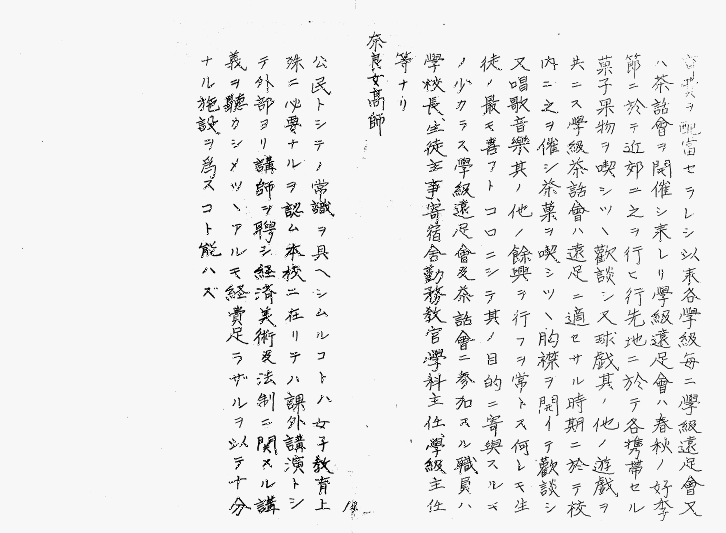 ヲ配當セラレシ以来各學級毎ニ學級遠足會又
ハ茶話會ヲ開催シ来レリ學級遠足會ハ春秋ノ好季
節ニ於テ近郊ニ之ヲ行ヒ行先地ニ於テ各携帯セル
菓子果物ヲ喫シツヽ歡談シ又球戯其ノ他ノ遊戯ヲ
共ニス學級茶話會ハ遠足ニ適セサル時期ニ於テ校
内ニ之ヲ催シ茶菓ヲ喫シツヽ胸襟ヲ開イテ歡談シ
又唱歌音樂其ノ他ノ餘興ヲ行フヲ常トス何レモ生
徒ノ最モ喜フトコロニシテ其ノ目的ニ寄與スルモ
ノ少カラス學級遠足會及茶話會ニ参加スル職員ハ
學校長生徒主事寄宿舎勤務教官學科主任學級主任
等ナリ
奈良女高師
公民トシテノ常識ヲ具ヘシムルコトハ女子教育上
殊ニ必要ナルヲ認ム本校ニ在リテハ課外講演トシ
テ外部ヨリ講師ヲ聘シ経済美術及法制ニ関スル講
義ヲ聽カシメツヽアルモ経費足ラザルヲ以テ十分
ナル施設ヲ為スコト能ハズ